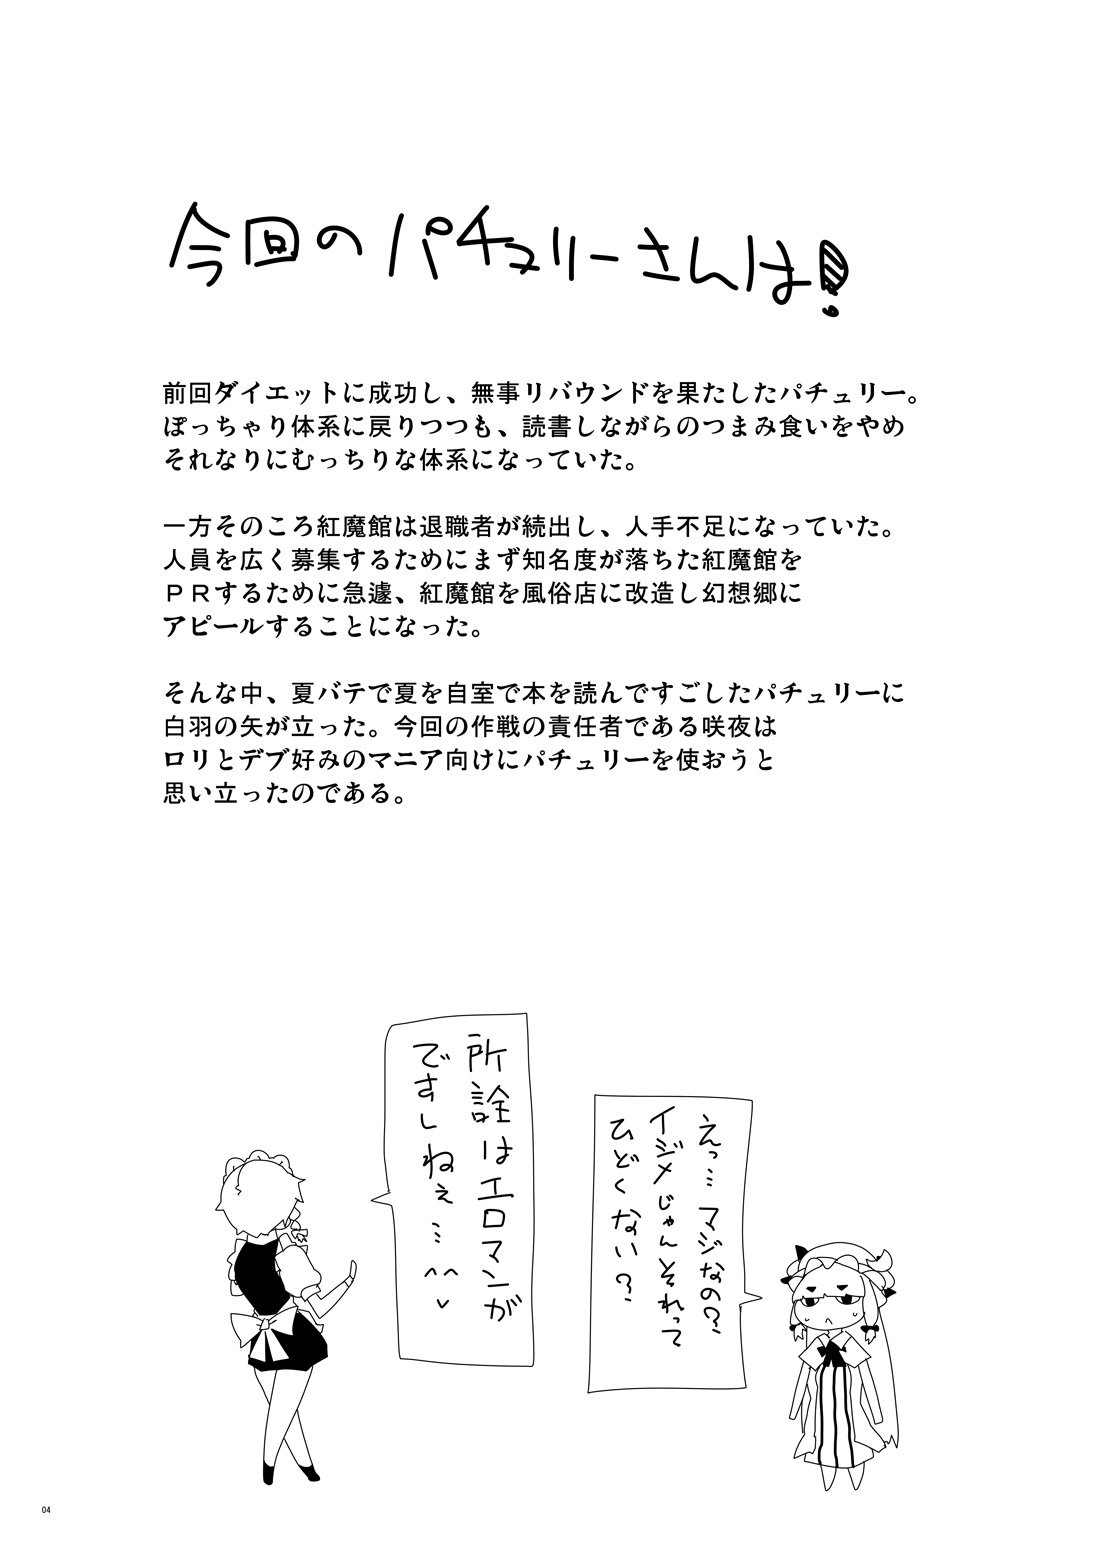 今回のパチュリーさんは!
前回ダイエットに成功し、無事リバウンドを果たしたパチュリー。
ぽっちゃり体系に戻りつつも、読書しながらのつまみ食いをやめ
それなりにむっちりな体系になっていた。
一方そのころ紅魔館は退職者が続出し、人手不足になっていた。
人員を広く募集するためにまず知名度が落ちた紅魔館を
ＰＲするために急遽、紅魔館を風俗店に改造し幻想郷に
アピールすることになった。
そんな中、夏バテで夏を自室で本を読んですごしたパチュリーに
白羽の矢が立った。今回の作戦の責任者である咲夜は
ロリとデブ好みのマニア向けにパチュリーを使おうと
思い立ったのである。
えっ…マジなの?
イジメじゃんそれって
ひどくない?
所詮はエロマンガ
ですしねぇ…^^
04